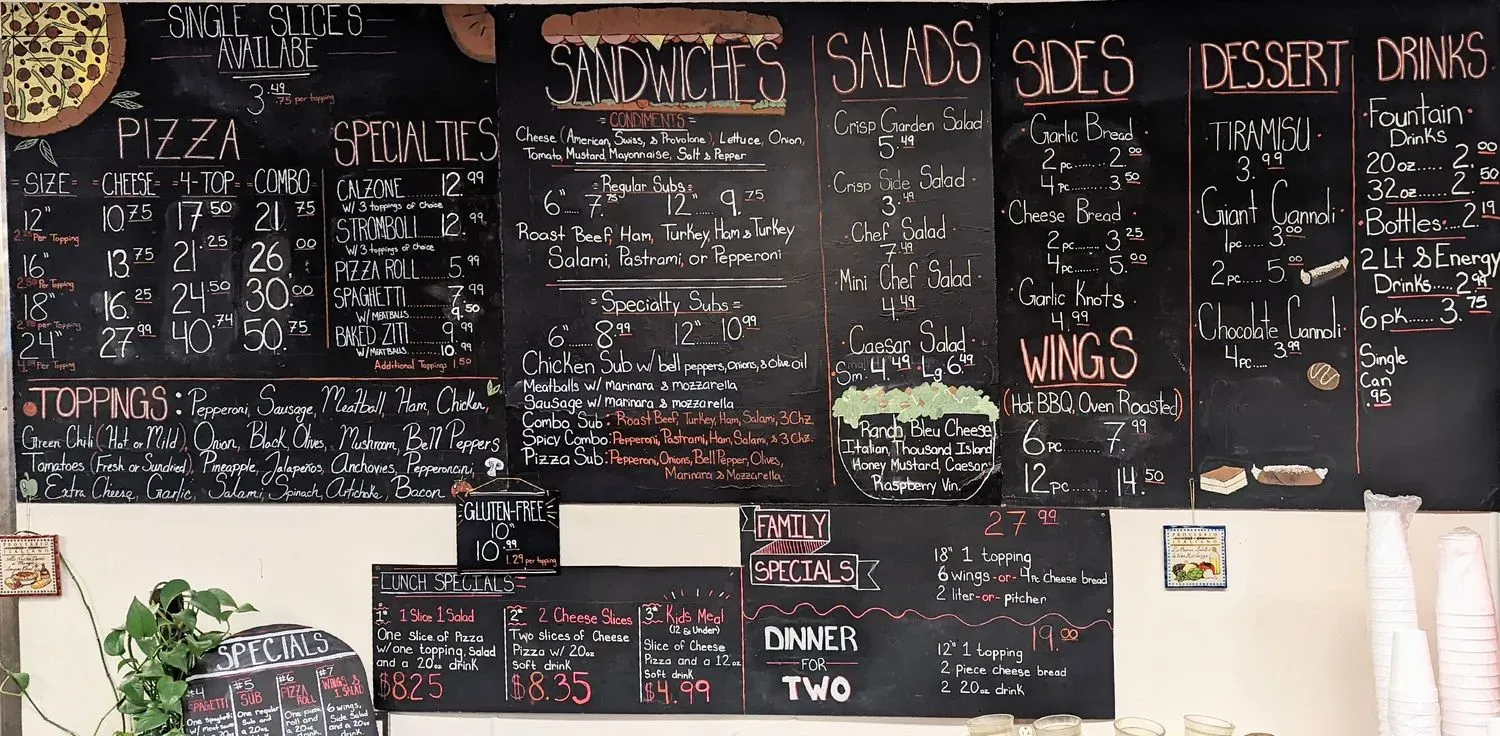 SINGLE SLICES
AVAILABE
3.49
.75 per topping
PIZZA
SIZE CHEESE 4-TOP COMBO
12" 10.75 17.50 21.75
Per Topping
16" 13.75 21.25 26.00
Per Topping
18" 16.25 24.50 30.00
Per Topping
24" 27.99 40.74 50.75
Per Topping
SPECIALTIES
CALZONE 12.99
W/ 3 toppings of choice
STROMBOLI 12.99
W/ 3 toppings of choice
PIZZA ROLL......5.99
SPAGHETTI......7.99
W/ MEATBALLS 9.50
BAKED ZITI 9.99
W/MEATBALLS 10.99
Additional Toppings 1.50
TOPPINGS: Pepperoni, Sausage, Meatball, Ham, Chicken,
Green Chili (Hot or Mild), Onion, Black Olives, Mushroom, Bell Peppers
Tomatoes (Fresh or Sundried), Pineapple, Jalapeños, Anchovies, Pepperoncini,
Extra Cheese, Garlic, Salami, Spinach, Artichoke, Bacon
SANDWICHES
CONDIMENTS
Cheese (American, Swiss, & Provolone), Lettuce, Onion,
Tomato, Mustard, Mayonnaise, Salt & Pepper
Regular Subs
6"...... 7.75 12"..... 9.75
Roast Beef, Ham, Turkey, Ham & Turkey
Salami, Pastrami, or Pepperoni
Specialty Subs
6" 8.99 12" 10.99
Chicken Sub w/ bell peppers, onions, & Olive oil
Meatballs w/ Marinara & mozzarella
Sausage w/ marinara & mozzarella
Combo Sub: Roast Beef, Turkey, Ham, Salami, 3 Chz.
Spicy Combo: Pepperoni, Pastrami, Ham, Salami, & 3 Chz.
Pizza Sub: Pepperoni, Onions, Bell Pepper, Olives,
Marinara & Mozzarella
SALADS
Crisp Garden Salad
5.49
Crisp Side Salad
3.49
Chef Salad
7.49
Mini Chef Salad
4.49
Caesar Salad
Sm. 4.49 Lg. 6.49
Ranch, Bleu Cheese,
Italian, Thousand Island
Honey Mustard, Caesar
Raspberry Vin.
SIDES
Garlic Bread
2 pc...... 2.00
4 pc...... 3.50
Cheese Bread
2 pc...... 3.25
4 pc...... 5.00
Garlic Knots
4.99
WINGS
(Hot, BBQ, Oven Roasted)
6 pc....... 7.99
12 pc....... 14.50
DESSERT
TIRAMISU
3.99
Giant Cannoli
1 pc.... 3.00
2 pc.... 5.00
Chocolate Cannoli
4 pc.... 3.99
DRINKS
Fountain
Drinks
20 oz..... 2.00
32 oz..... 2.50
Bottles...2.19
2 Lt & Energy
Drinks..... 2.99
6 pk...... 3.75
Single
Can
.95
GLUTEN-FREE
10"
10.99
1.29 per topping
LUNCH SPECIALS
1 Slice 1 Salad
One slice of Pizza
w/one topping, salad
and a 20oz drink
$8.25
2 Cheese Slices
Two slices of Cheese
Pizza w/ 20oz
soft drink
$8.35
Kids Meal
(12 & Under)
Slice of Cheese
Pizza and a 12oz
soft drink
$4.99
FAMILY
SPECIALS
27.99
18" 1 topping
6 wings -or- 4pc cheese bread
2 liter -or- pitcher
DINNER
FOR
TWO
19.00
12" 1 topping
2 piece cheese bread
2 20oz drink
SPECIALS
#4
SPAGHETTI
One spaghetti
w/ meat sauce
#5
SUB
One regular
Sub and
a 20oz
#6
PIZZA
ROLL
One pizza
roll and
a 20oz
drink
#7
WINGS &
1 SALAD
6 wings,
Side Salad
and a 20oz
drink.
PROVERBIO
ITALIANO
PROVERBIO
ITALIANO